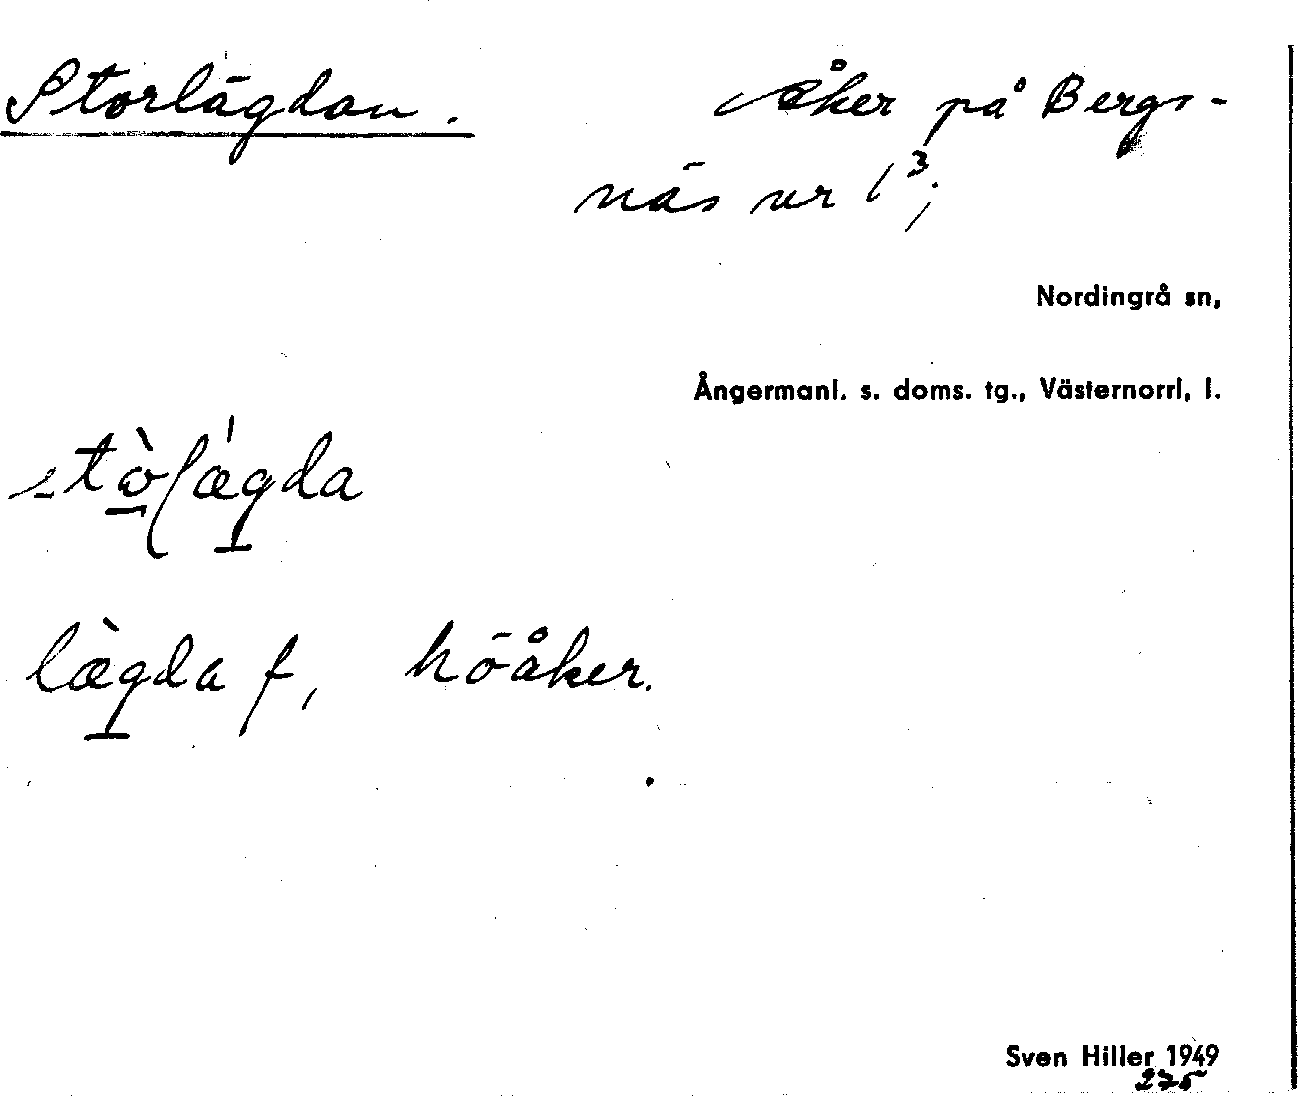 Storlägdan. åker på Bergs-
näs nr 1³;
Nordingrå sn,
Ångermanl. s. doms. tg., Västernorrl, l.
stòlægda
lægda f, höåker.
Sven Hiller 1949
275